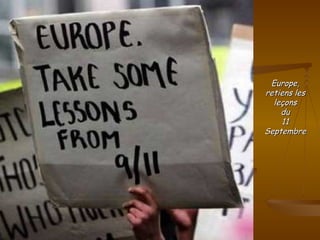 EUROPE.
TAKE SOME
LESSONS
FROM
9/11
Europe,
retiens les
leçons
du
11
Septembre